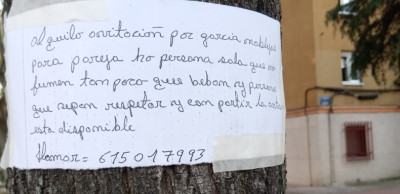 alquilo avitacioñ por garcia noblejas
para pareja ho persona sola que no
fumen tampoco que beban y persona
que sepan respetar y compartir la
esta disponible
llamar = 615017993